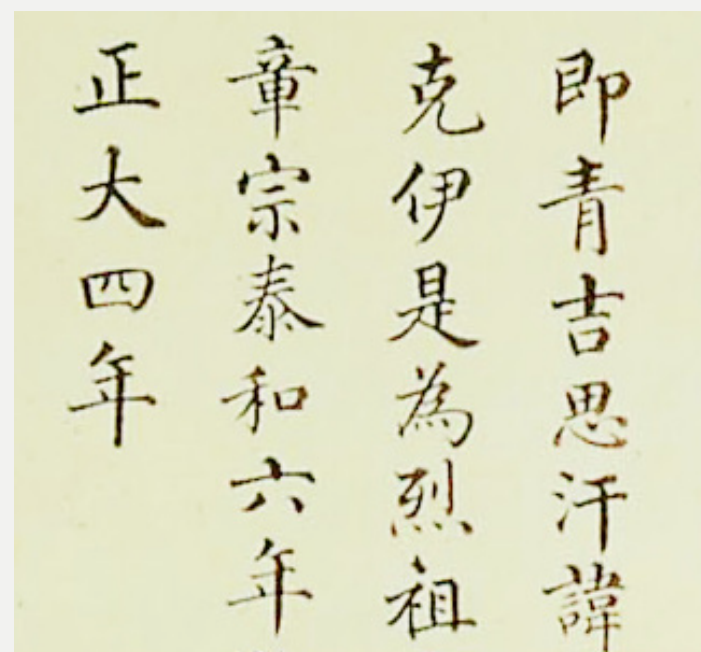 即青吉思汗諱
克伊是為烈祖
章宗泰和六年
正大四年